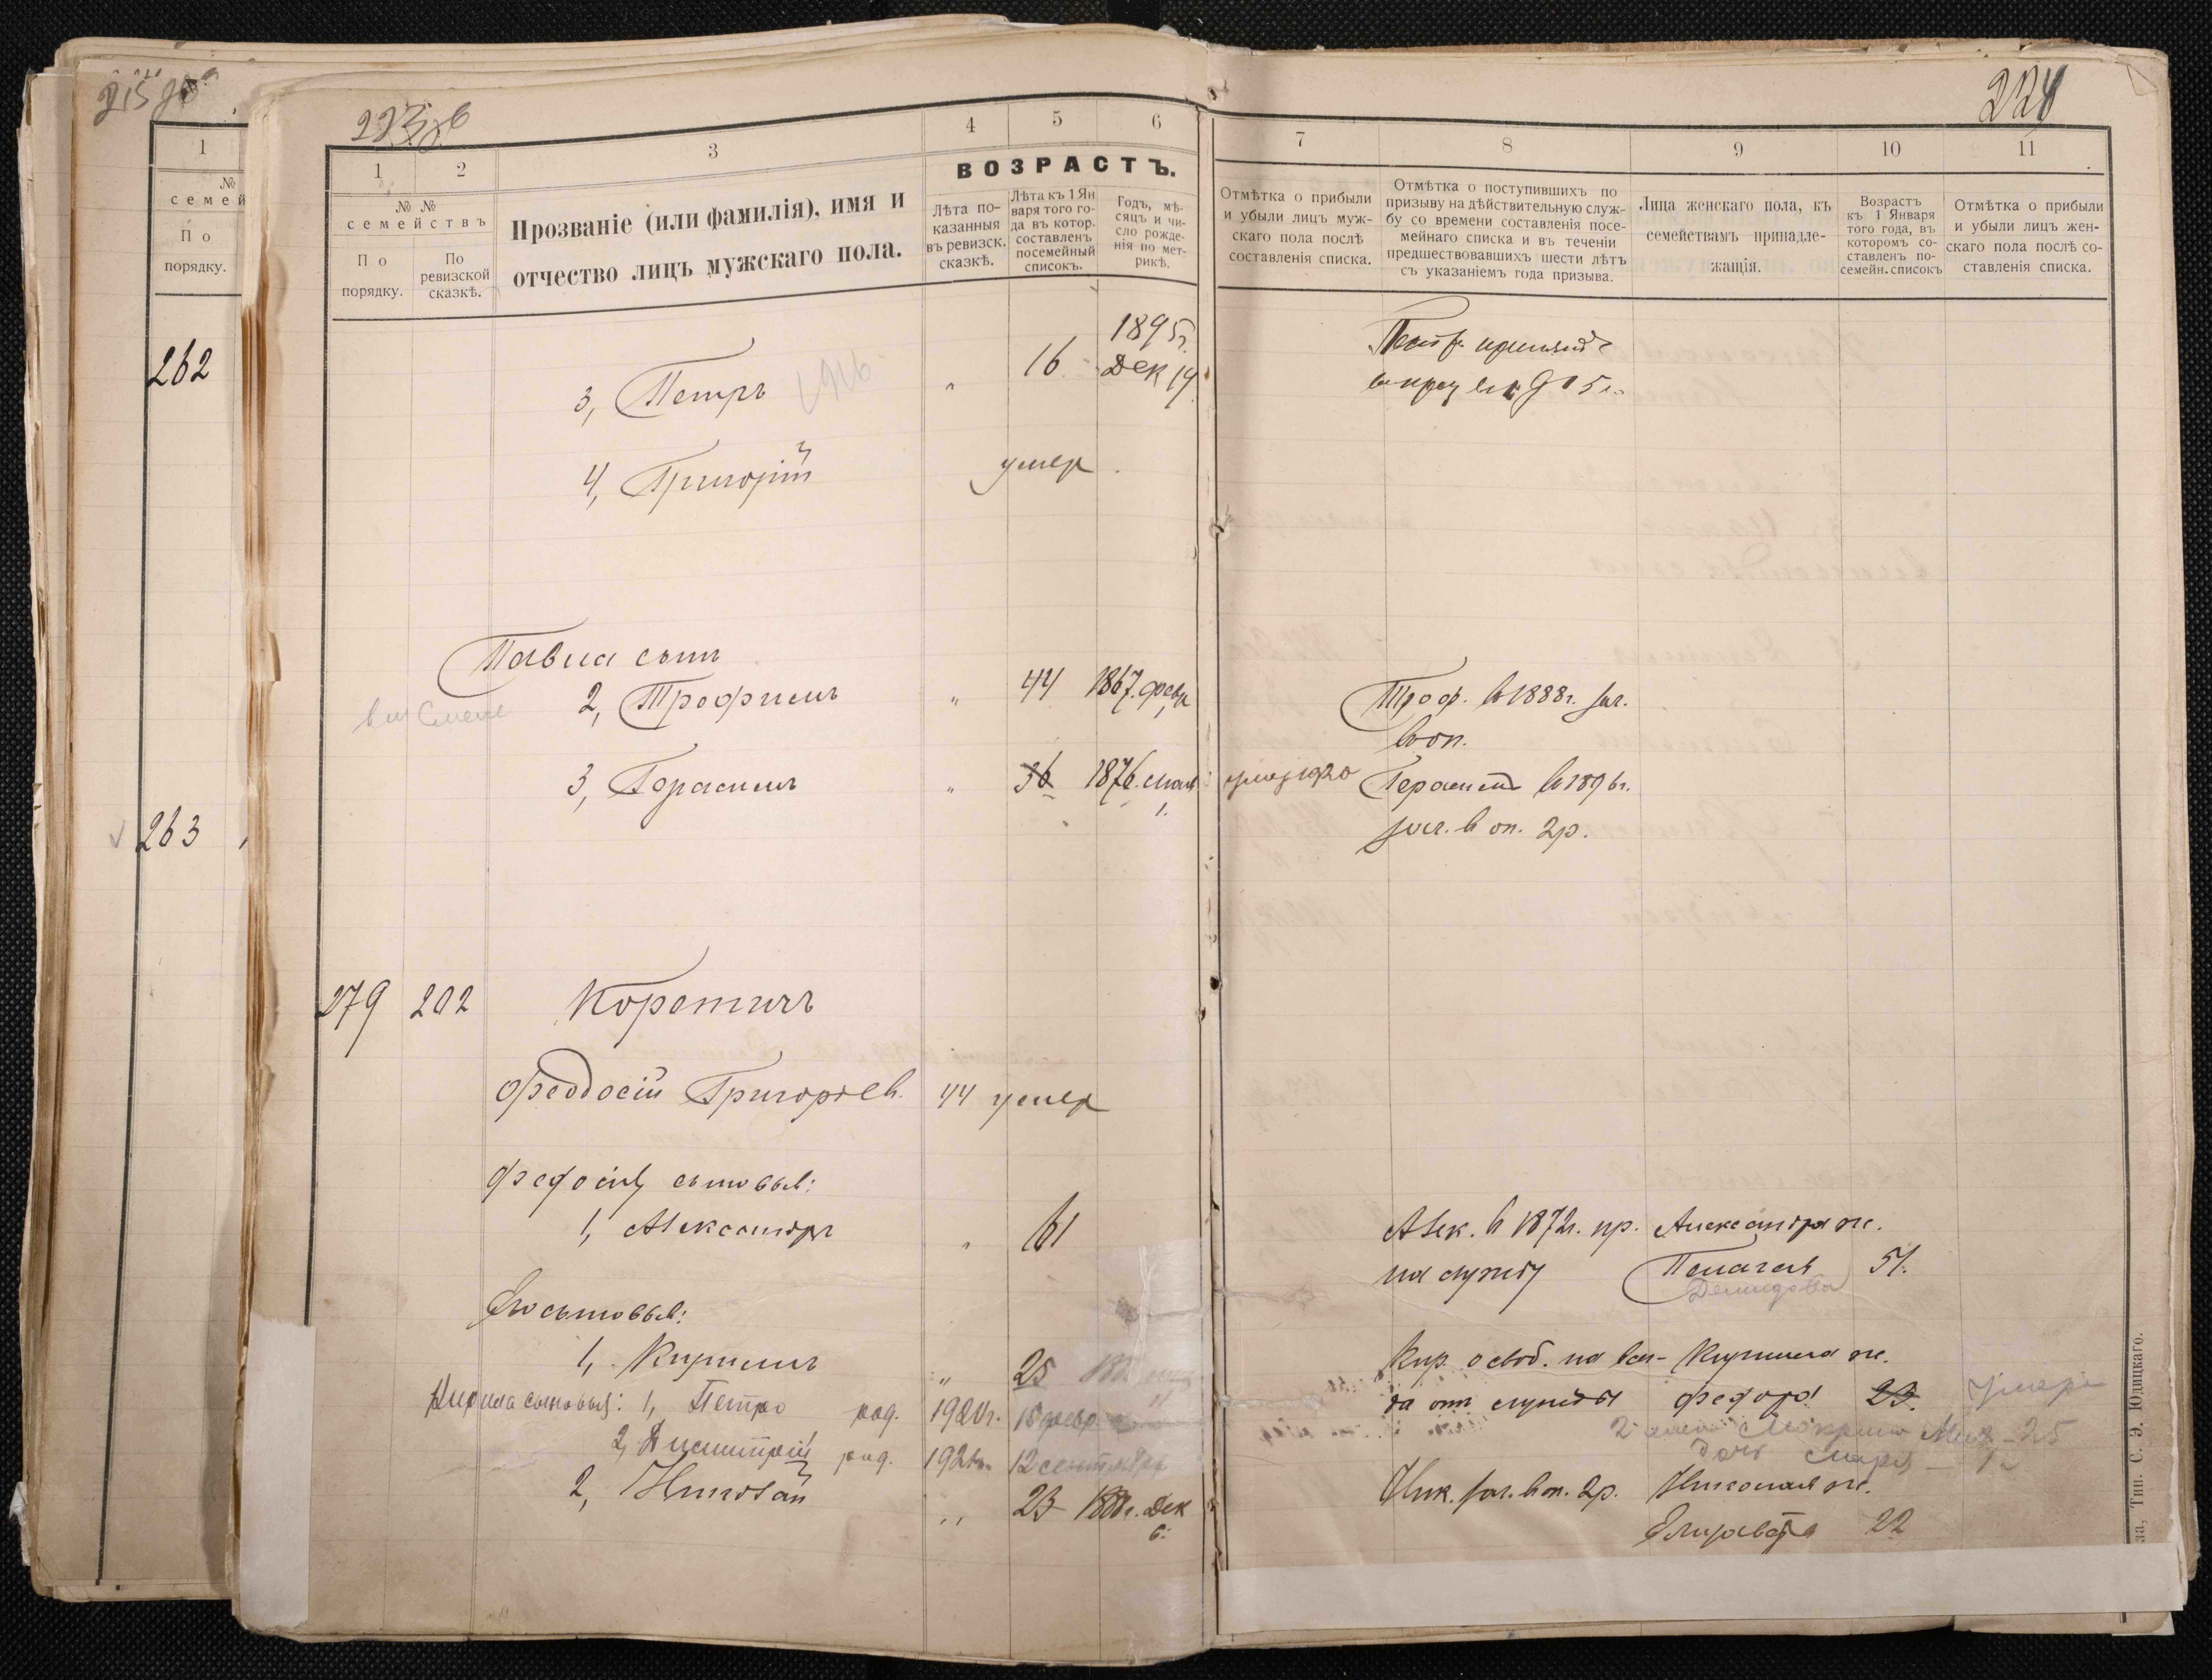 1
№
семей
По
порядку.
262
263
223об
1
2
3
4
5
6
№ №
семействъ
По
порядку.
По
ревизской
сказкѣ.
Прозваніе (или фамилія), имя и
отчество лицъ мужскаго пола.
ВОЗРАСТЪ.
Лѣта по-
казанныя
въ ревизск.
сказкѣ.
Лѣта къ 1 Ян
варя того го-
да въ котор.
составленъ
посемейный
списокъ.
Годъ, мѣ-
сяцъ и чи-
сло рожде-
нія по мет-
рикѣ.
3, Петръ 1916 „ 16 1895г.
Дек 19.
4, Григорій умер.
Павла сын
2, Трофимъ „ 44 1867. февр
3, Герасимъ „ 36 1876. мая
1.
279 202 Коротичъ
Феодосій Григорьев. 44 умер
Федосія сыновья:
1, Александръ „ 61
Его сыновья:
1, Кирилъ „ 25
Кирила сыновья: 1, Петро род. 1920г. 18 февр.
2, Дмитрій род. 12 сентября
2, Николай „ 23 Дек
6.
224
7
8
9
10
11
Отмѣтка о прибыли
и убыли лицъ муж-
скаго пола послѣ
составленія списка.
Отмѣтка о поступившихъ по
призыву на дѣйствительную служ-
бу со времени составленія посе-
мейнаго списка и въ теченіи
предшествовавшихъ шести лѣтъ
съ указаніемъ года призыва.
Лица женскаго пола, къ
семействамъ принадле-
жащія.
Возрастъ
къ 1 Января
того года, въ
которомъ со-
ставленъ по-
семейн. списокъ
Отмѣтка о прибыли
и убыли лицъ жен-
скаго пола послѣ со-
ставленія списка.
Петр. принят
Троф. в 1888г. зач.
в оп.
умер 1920 Герасим в 1896г.
зач. в оп. 2р.
Алек. в 1872г. пр. Александра ж.
на службу Пелагея 51.
Демидова
Кир. освоб. на всег- Кирилла ж.
да от службы Федора 23. умерла
2 жена Мокрина 25
дочь Мария – 1
Ник. зач. в оп. 2р. Николая ж.
Елизавета 22
за, Тип. С. Э. Юдицкаго.